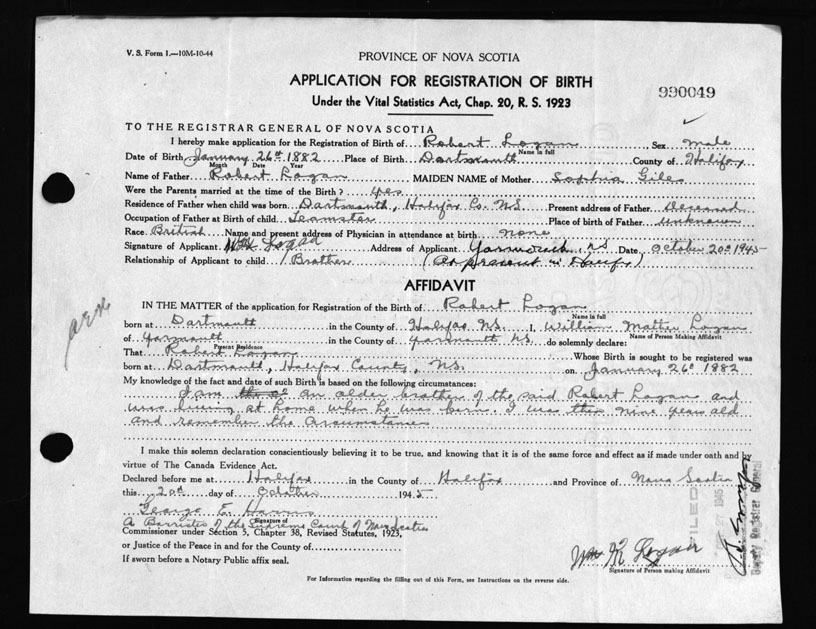 V. S. Form 1.—10M-10-44
PROVINCE OF NOVA SCOTIA
APPLICATION FOR REGISTRATION OF BIRTH
990049
Under the Vital Statistics Act, Chap. 20, R. S. 1923
TO THE REGISTRAR GENERAL OF NOVA SCOTIA
I hereby make application for the Registration of Birth of Robert Logan Sex male
Name in full
Date of Birth January 26th 1882 Place of Birth Dartmouth County of Halifax
Month Date Year
Name of Father Robert Logan MAIDEN NAME of Mother Sophia Giles
Were the Parents married at the time of the Birth? yes
Residence of Father when child was born Dartmouth, Halifax Co. N.S. Present address of Father Deceased
Occupation of Father at Birth of child Teamster Place of birth of Father unknown
Race British Name and present address of Physician in attendance at birth none
Signature of Applicant Wm Logan Address of Applicant Yarmouth N.S Date October 20th 1945
Relationship of Applicant to child Brother (At present in Halifax)
AFFIDAVIT
IN THE MATTER of the application for Registration of the Birth of Robert Logan
Name in full
born at Dartmouth in the County of Halifax N.S. I, William Logan
Name of Person Making Affidavit
of Yarmouth in the County of Yarmouth N.S. do solemnly declare:
Present Residence
That Robert Logan Whose Birth is sought to be registered was
born at Dartmouth, Halifax County, N.S. on January 26th 1882
My knowledge of the fact and date of such Birth is based on the following circumstances:
I am an older brother of the said Robert Logan and
was living at home when he was born. I was then nine years old
and remember the circumstances
I make this solemn declaration conscientiously believing it to be true, and knowing that it is of the same force and effect as if made under oath and by
virtue of The Canada Evidence Act.
Declared before me at Halifax in the County of Halifax and Province of Nova Scotia
this 20th day of October 1945
George E.
Signature of
A Barrister of the Supreme Court of Nova Scotia
Commissioner under Section 5, Chapter 38, Revised Statutes, 1923,
or Justice of the Peace in and for the County of
If sworn before a Notary Public affix seal.
Wm Logan
Signature of Person making Affidavit
For Information regarding the filling out of this Form, see Instructions on the reverse side.
FILED
1945
Deputy Registrar General